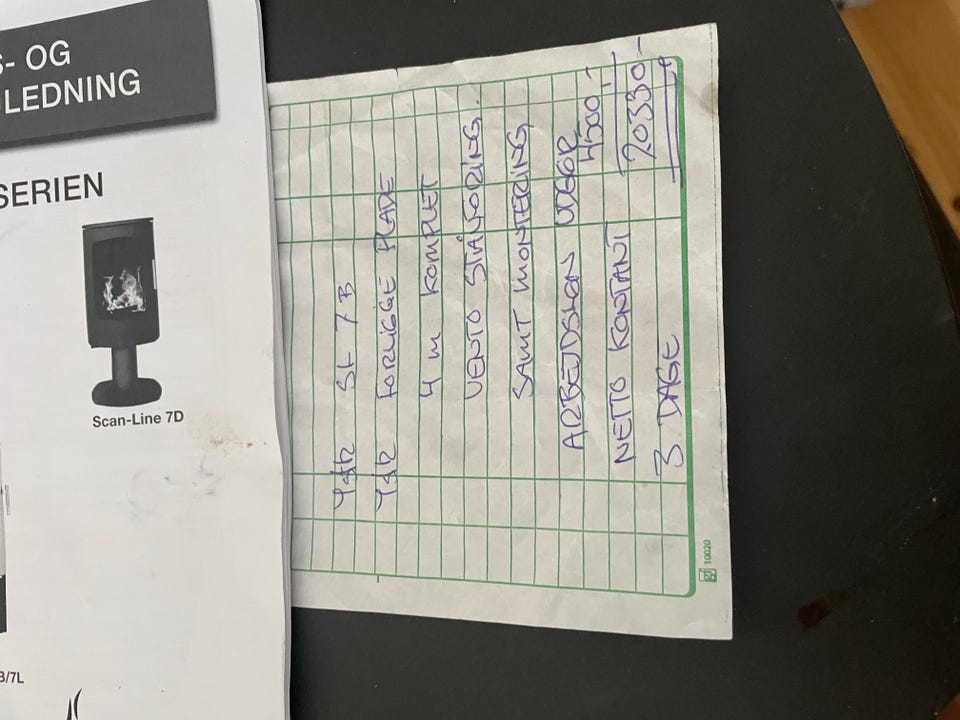 S- OG
LEDNING
SERIEN
Scan-Line 7D
B/7L
1 stk SL 7B
1 stk FORLIGGE PLADE
4 m KOMPLET
VENTO STÅLFORING.
SAMT MONTERING,
ARBEJDSLØN UDGØR
4500,-
NETTO KONTANT 20330,-
3 DAGE
gj 10020